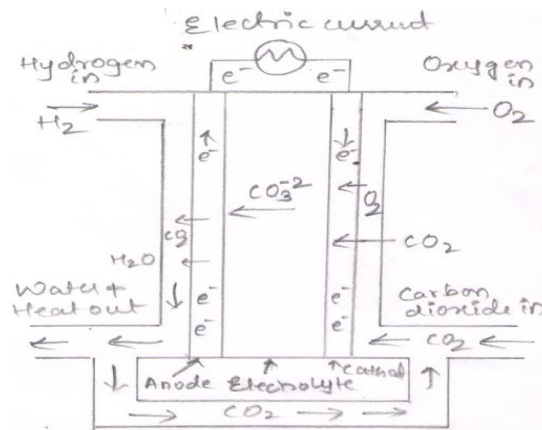 Electric current
Hydrogen in
e⁻ e⁻
Oxygen in
H₂
O₂
e⁻
e⁻
CO₃⁻²
O₂
CO₂
CO₂
H₂O
Water + Heat out
e⁻
e⁻
e⁻
e⁻
Carbon dioxide in
CO₂
Anode Electrolyte Cathod
CO₂